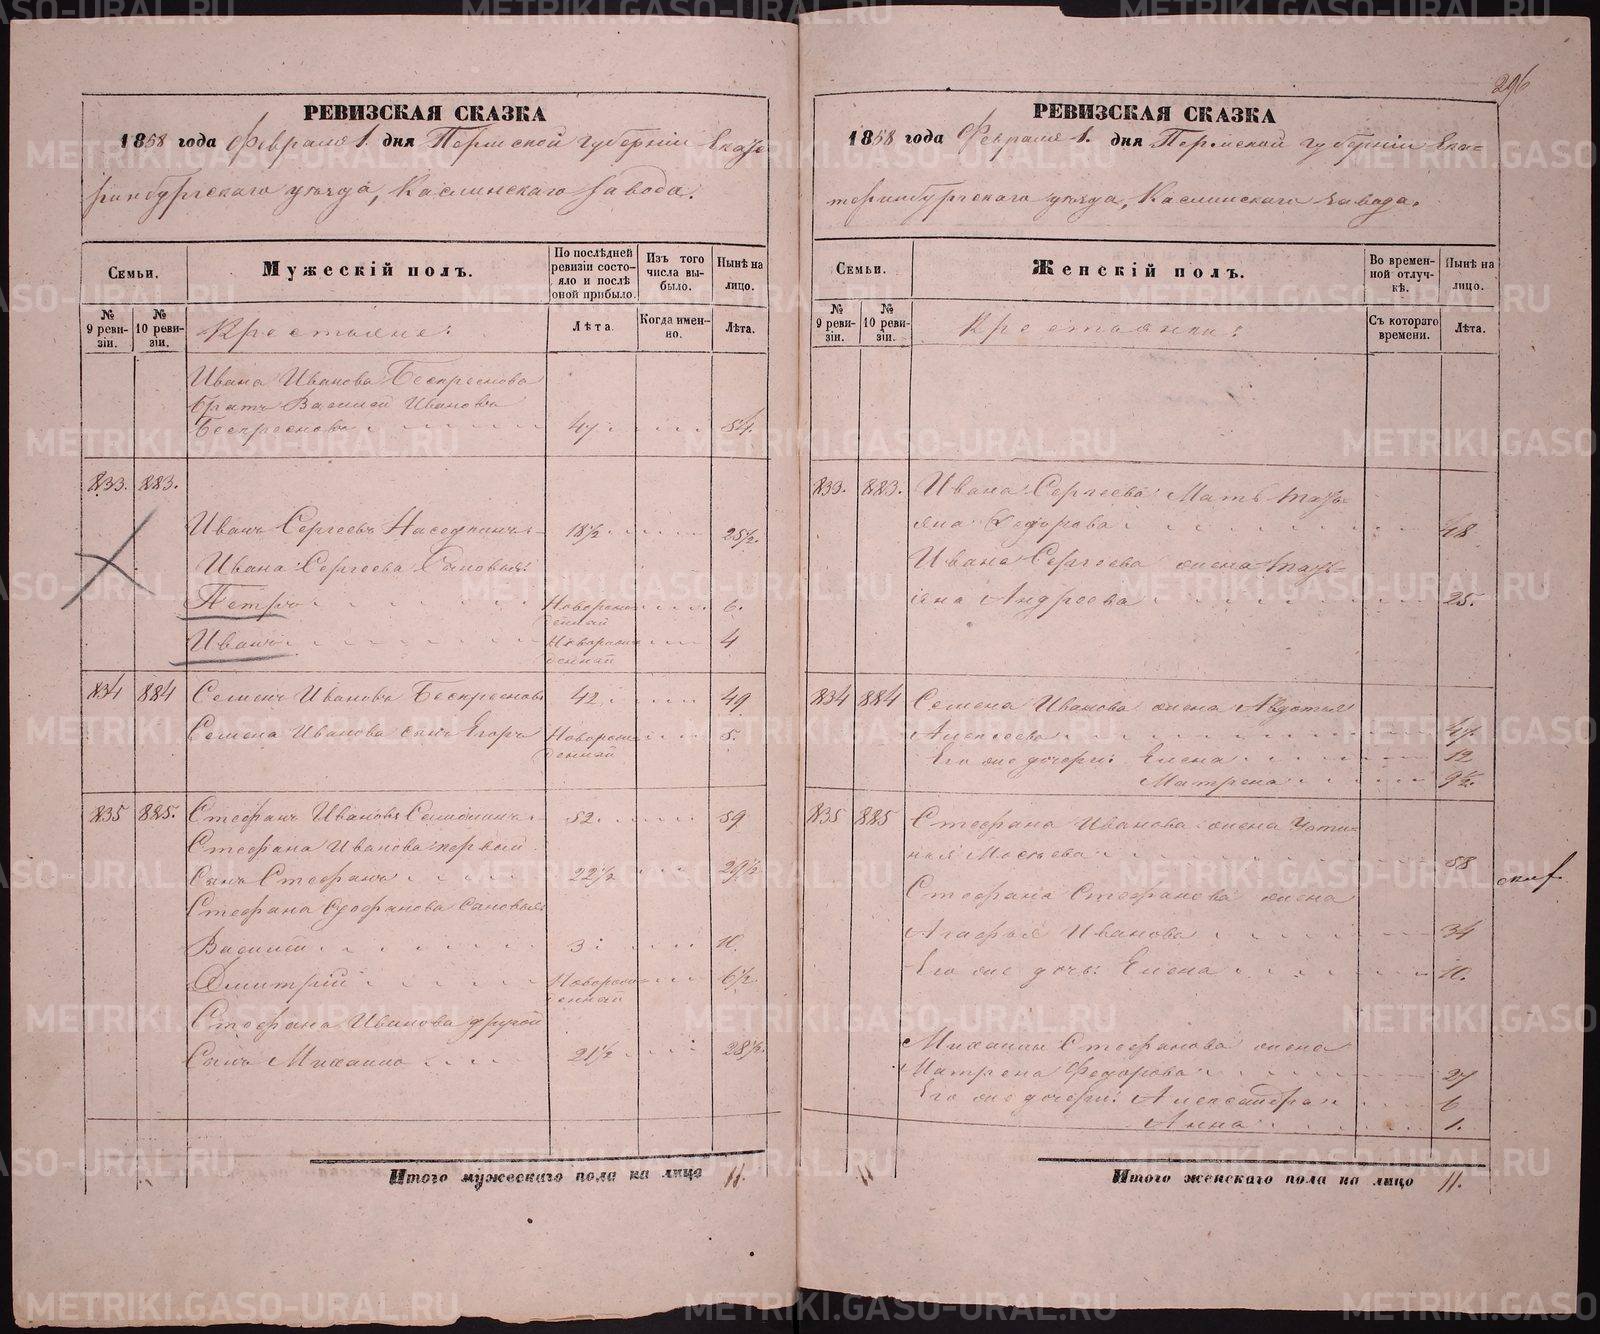 РЕВИЗСКАЯ СКАЗКА
1858 года Февраля 1. дня Пермской губерніи Екате
ринбургскаго уѣзда, Каслинскаго завода.
Семьи.
Мужескій полъ.
По послѣдней ревизіи состояло и послѣ оной прибыло.
Изъ того числа выбыло.
Нынѣ на лицо.
№ 9 ревизіи.
№ 10 ревизіи.
Крестьяне:
Лѣта.
Когда именно.
Лѣта.
Ивана Иванова
братъ Василей Ивановъ
47 54.
833. 883.
Иванъ Сергеевъ Наседкинъ 18½ 25½.
Ивана Сергеева Сыновья:
Петръ Новорожденный 6.
Иванъ Новорожденный 4
834 884 Семенъ Ивановъ 42 49
Семена Иванова сынъ Егоръ Новорожденный 5.
835 885. Стефанъ Ивановъ 52 59
Стефана Иванова первый
Сынъ Стефанъ 22½ 29½
Стефана Стефанова Сыновья
Василей 3 10.
Дмитрій Новорожденный 6½
Стефана Иванова другой
Сынъ Михаило 21½ 28½.
Итого мужескаго пола на лицо 11.
296
РЕВИЗСКАЯ СКАЗКА
1858 года Февраля 1. дня Пермской губерніи Ека-
теринбургскаго уѣзда, Каслинскаго завода.
Семьи.
Женскій полъ.
Во временной отлучкѣ.
Нынѣ на лицо.
№ 9 ревизіи.
№ 10 ревизіи.
Крестьянки:
Съ котораго времени.
Лѣта.
833. 883. Ивана Сергеева Мать Тать-
яна Федорова 48
Ивана Сергеева жена Тать-
яна Андреева 25.
834 884 Семена Иванова жена Авдотья
Алексеева 47.
Его же дочери: Елена 12
Матрена 9½.
835 885 Стефана Иванова жена Усти-
нья 58
Стефана Стефанова жена
Агафья Иванова 34
Его же дочь: Елена 10.
Михайлы Стефанова жена
Матрена Федорова 27
Его же дочери: Александра 6
Анна 1.
Итого женскаго пола на лицо 11.
METRIKI.GASO-URAL.RU